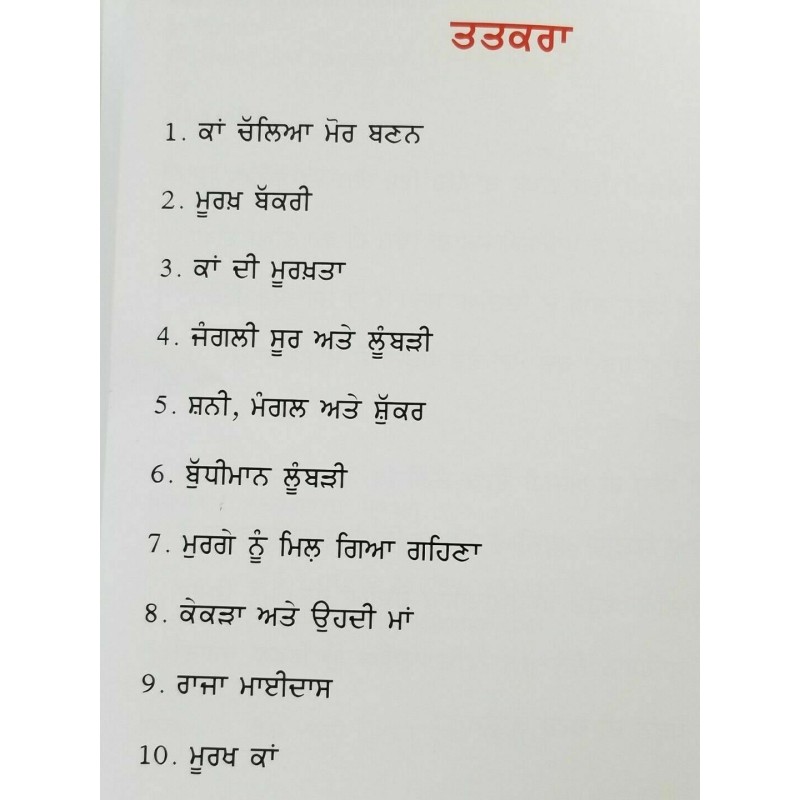 ਤਤਕਰਾ
1. ਕਾਂ ਚੱਲਿਆ ਮੋਰ ਬਣਨ
2. ਮੂਰਖ਼ ਬੱਕਰੀ
3. ਕਾਂ ਦੀ ਮੂਰਖ਼ਤਾ
4. ਜੰਗਲੀ ਸੂਰ ਅਤੇ ਲੂੰਬੜੀ
5. ਸ਼ਨੀ, ਮੰਗਲ ਅਤੇ ਸ਼ੁੱਕਰ
6. ਬੁੱਧੀਮਾਨ ਲੂੰਬੜੀ
7. ਮੁਰਗੇ ਨੂੰ ਮਿਲ਼ ਗਿਆ ਗਹਿਣਾ
8. ਕੇਕੜਾ ਅਤੇ ਉਹਦੀ ਮਾਂ
9. ਰਾਜਾ ਮਾਈਦਾਸ
10. ਮੂਰਖ ਕਾਂ